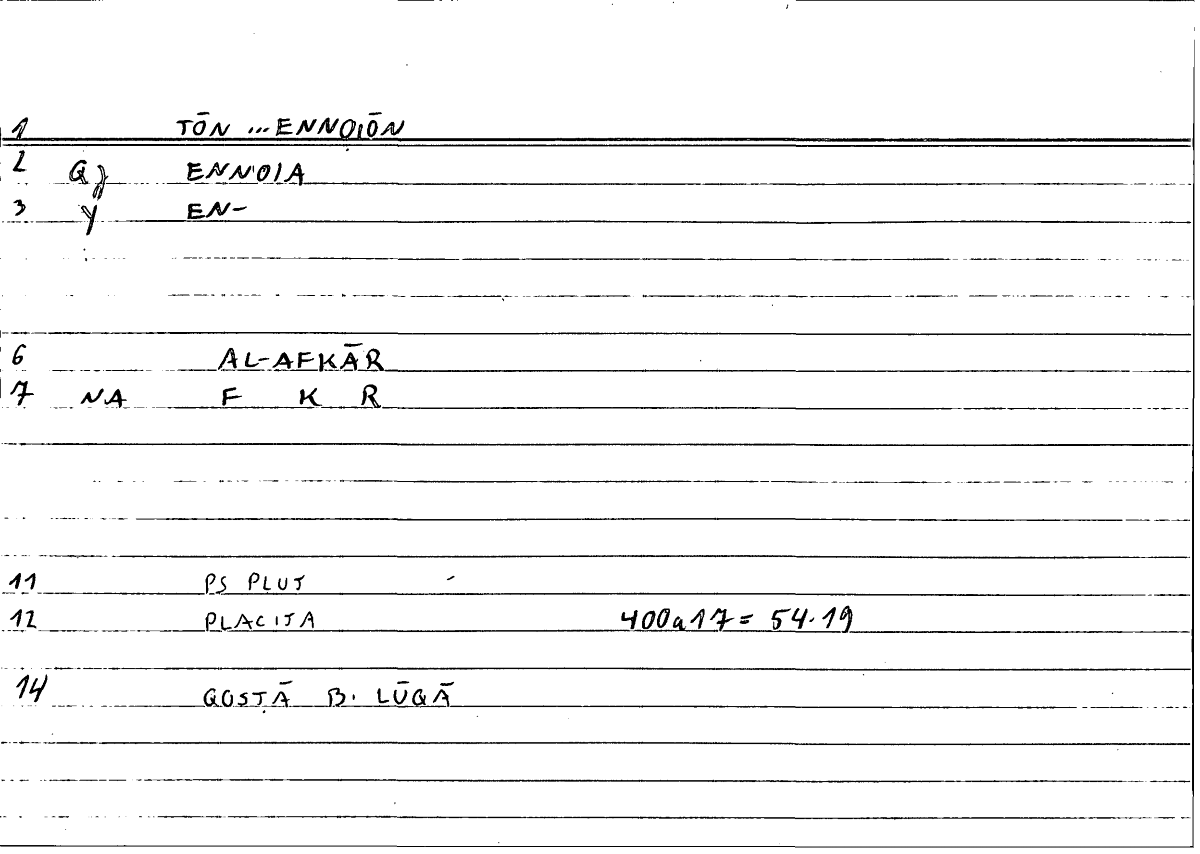 1 TŌN ... ENNOIŌN
2 Q) ENNOIA
3 Y EN-
6 AL-AFKĀR
7 NA F K R
11 PS PLUT -
12 PLACITA 400a17 = 54.19
14 QOSṬĀ B. LŪQĀ